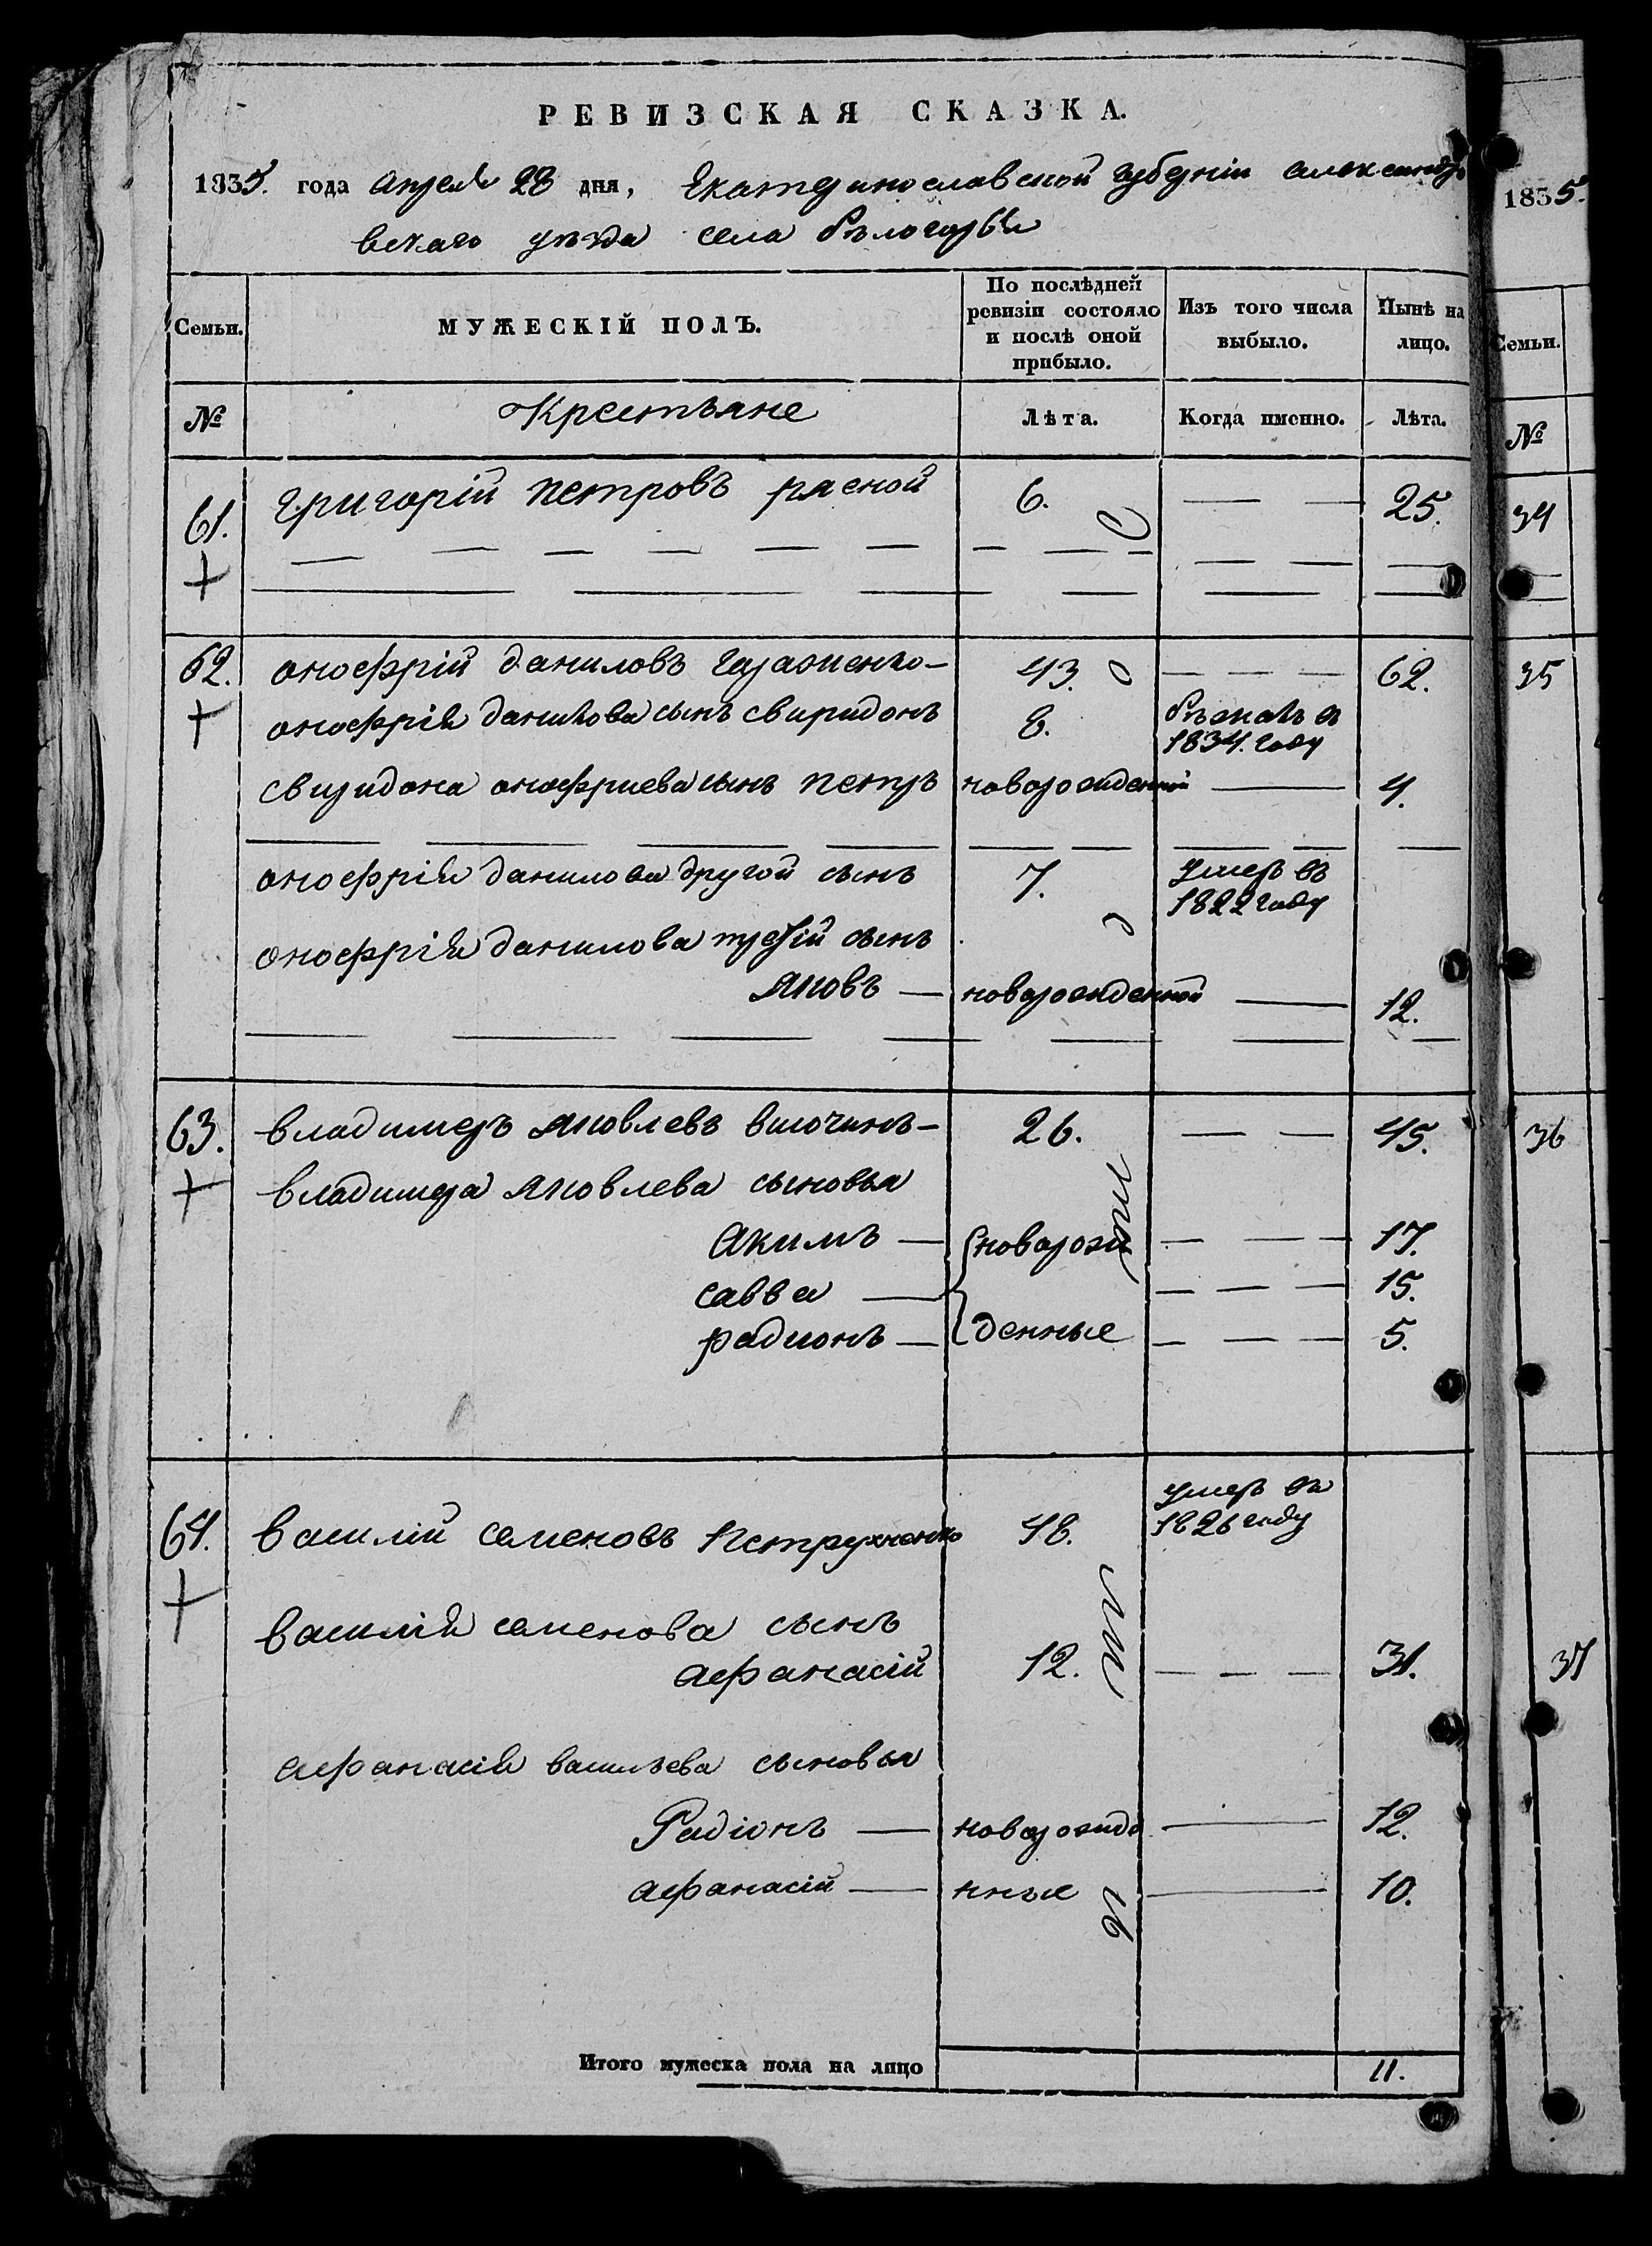 РЕВИЗСКАЯ СКАЗКА.
1835. года Апреля 28 дня, Екатеринославской губернии Александро
вскаго уезда села Белогорья
Семьи. МУЖЕСКІЙ ПОЛЪ. По послѣдней ревизіи состояло и послѣ оной прибыло. Изъ того числа выбыло. Нынѣ на лицо.
№ Крестьяне Лѣта. Когда именно. Лѣта.
61. Григорій Петровъ 6. 25.
62. Онофрій Даниловъ 43. 62.
Онофрія Данилова сынъ Свиридонъ 8. бежалъ в
1834. году
Свиридона Онофриева сынъ Петръ новорожденной 4.
Онофрія Данилова другой сынъ 7. умеръ въ
1822 году
Онофрія Данилова третій сынъ
Яковъ — новорожденной 12.
63. Владимеръ Яковлевъ 26. 45.
Владимера Яковлева сыновья
Акимъ — новорож 17.
Савва — 15.
Радионъ — денные 5.
64. Василій Семеновъ Петрухненко 48. умеръ въ
1826 году
Василія Семенова сынъ
Афанасій 12. 31.
Афанасія Васильева сыновья
Радіонъ — новорожде 12.
Афанасій — нные 10.
Итого мужеска пола на лицо 11.
1835.
Семьи.
№
34
35
36
37